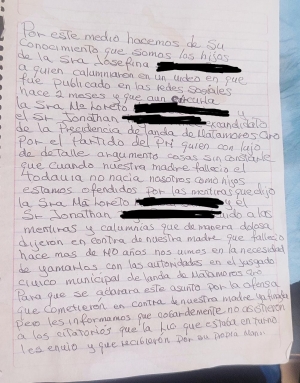 Por este medio hacemos de su
conocimiento que somos los hijos
de la Sra Josefina
a quien calumniaron en un video en que
fue publicado en las redes sosiales
hace 2 meses y que aun circula
la Sra Ma Loreto y
el Sr Jonathan excandidato
de la Precidencia de landa de Matamoros Qro
Por el Partido del PRI quien con lujo
de detalle argumento cosas sin constarle
que cuando nuestra madre fallecio el
todavia no nacia nosotros como hijos
estamos ofendidos por las mentiras que dijo
la Sra Ma Loreto y el
Sr Jonathan a las
mentiras y calumnias que de manera dolosa
dijeron en contra de nuestra madre que fallecio
hace mas de 40 años nos vimos en la necesidad
de yamarlos con las autoridades en el juzgado
civico municipal de landa de Matamoros Qro
Para que se aclarara este asunto por la ofensa
que cometieron en contra de nuestra madre ya finada
pero les informamos que cobardemente no asistieron
a los citatorios que la Lic que estaba en turno
les envio y que recibieron por su propia mano